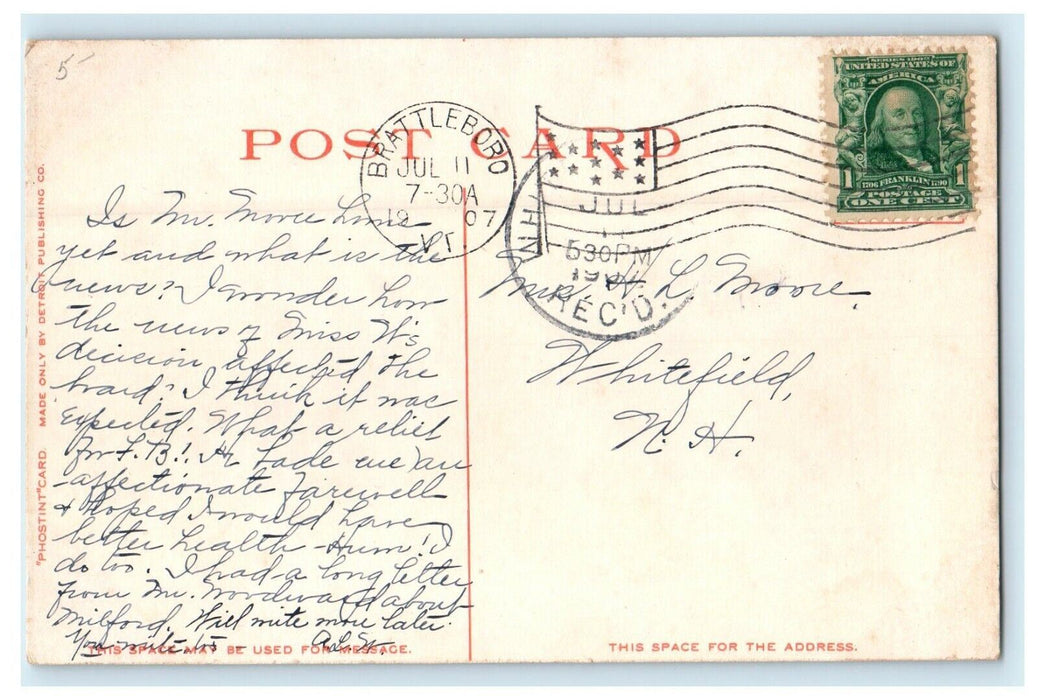 5
POST CARD
BRATTLEBORO
JUL 11
7-30A
19 07
VT.
JUL
5 30 PM
REC'D.
N.H.
SERIES 1902
UNITED STATES OF
AMERICA
1706 FRANKLIN 1790
1 POSTAGE 1
ONE CENT
"PHOSTINT" CARD. MADE ONLY BY DETROIT PUBLISHING CO.
Is Mr. Moore home
yet and what is the
news? I wonder how
the news of Miss W's
decision affected the
board? I think it was
expected. What a relief
for F.B.! He bade me an
affectionate farewell
& hoped I would have
better health - Hum! I
do too. I had a long letter
from Mr. Woodward about
Milford. Will write more later.
You write too
L. Moore.
Whitefield,
N. H.
THIS SPACE MAY BE USED FOR MESSAGE.
THIS SPACE FOR THE ADDRESS.